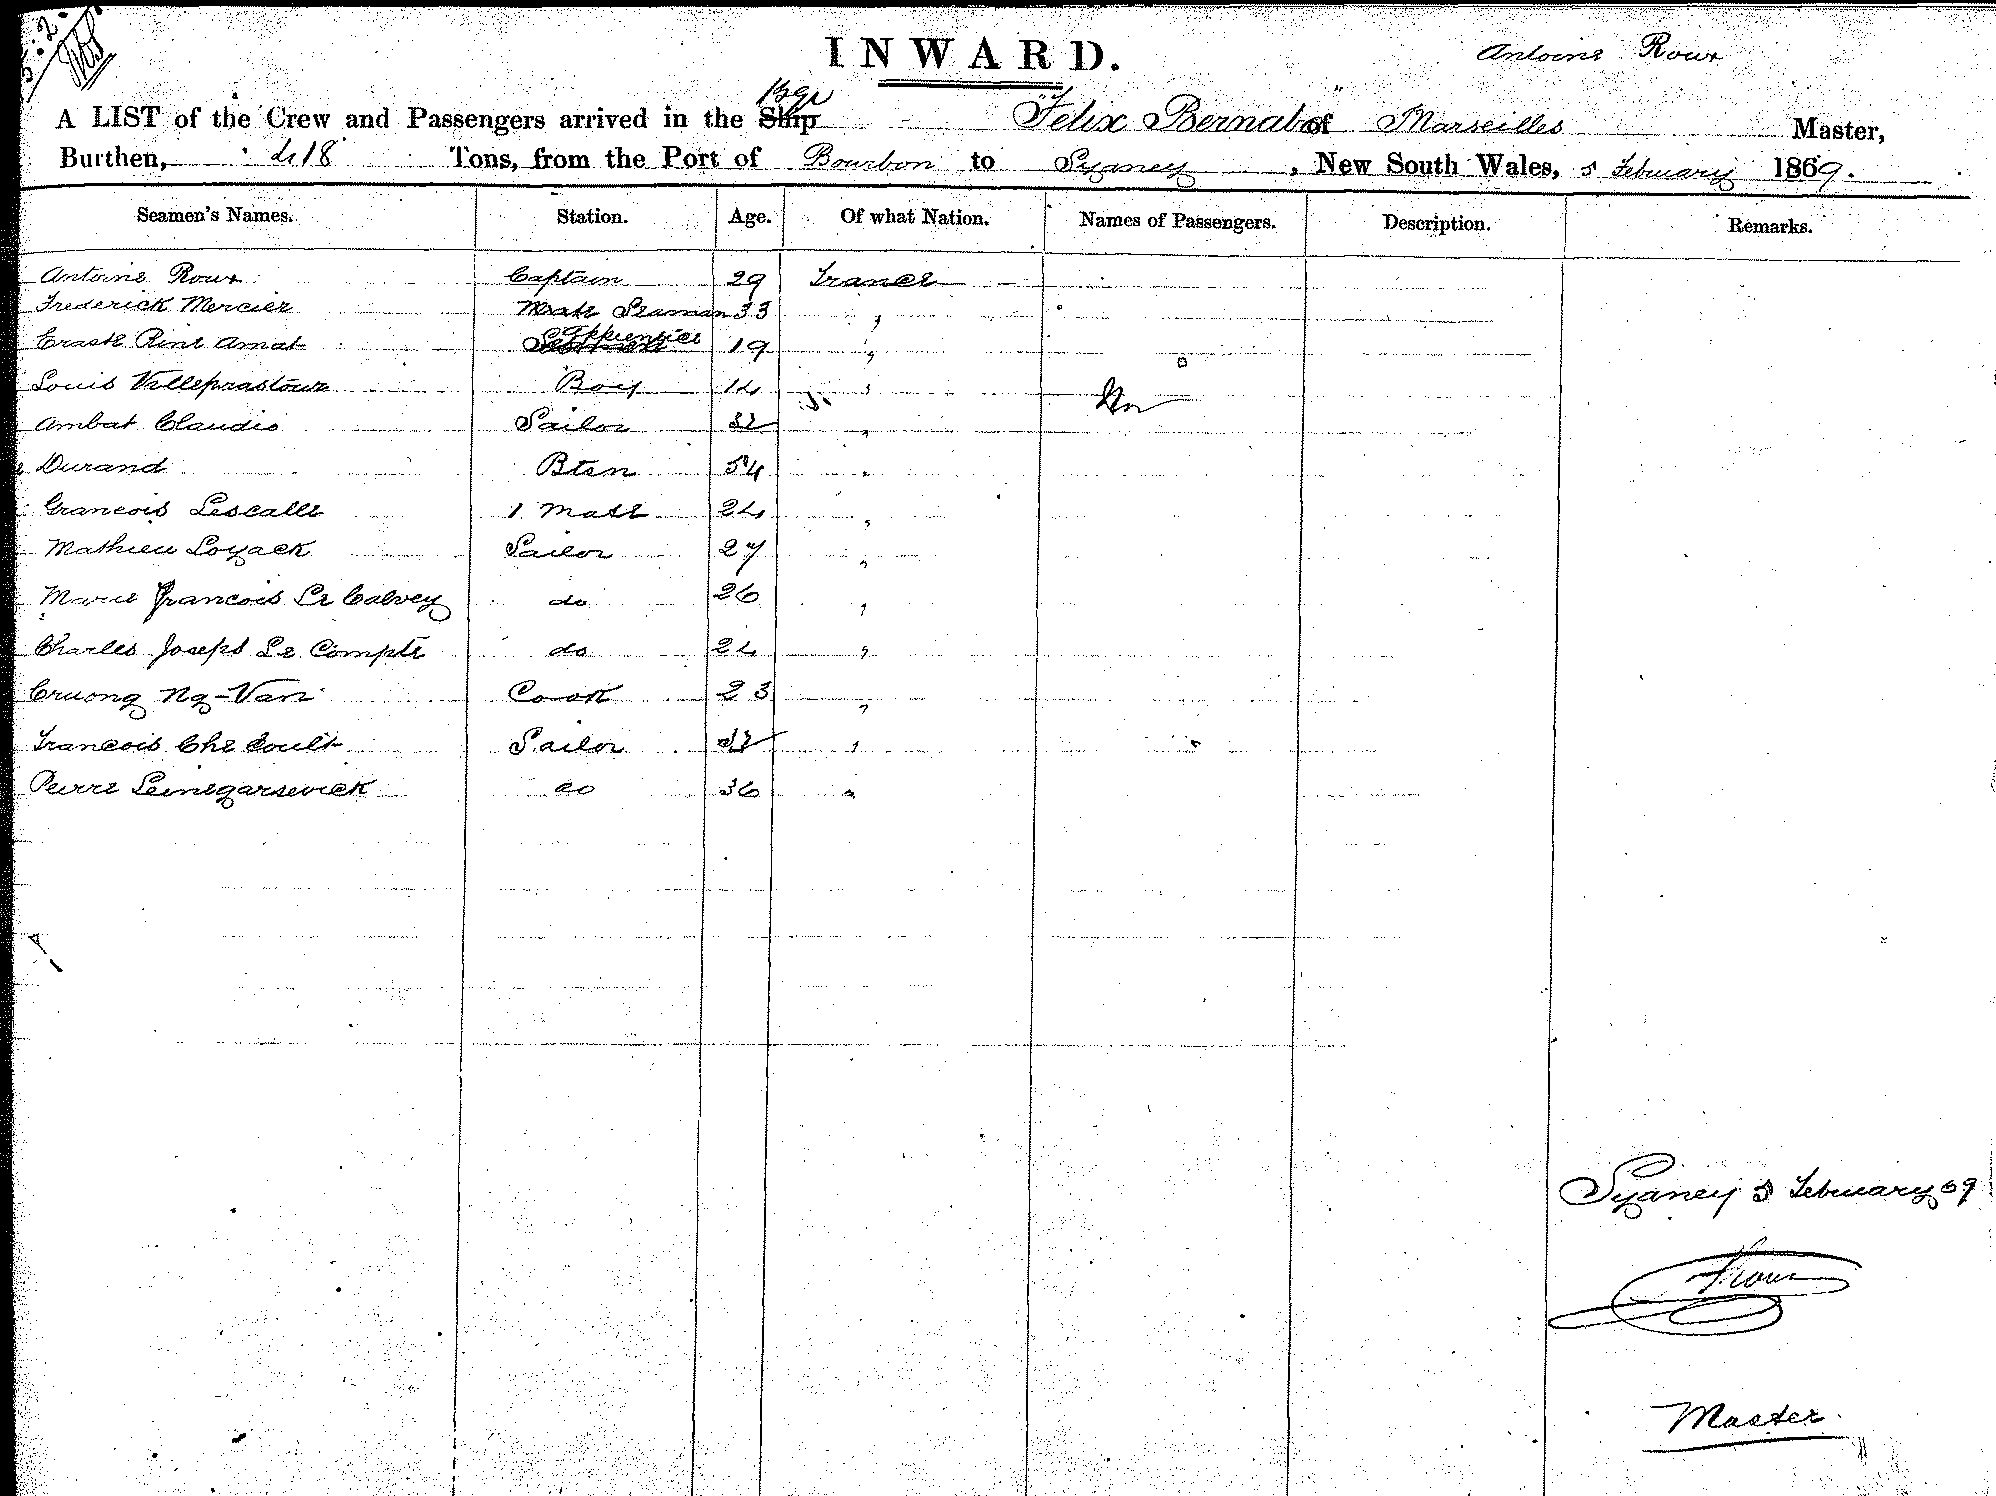 INWARD.
Antoine Roux
A LIST of the Crew and Passengers arrived in the Ship Bge "Felix Bernabo" of Marseilles Master,
Burthen, 418 Tons, from the Port of Bourbon to Sydney, New South Wales, 5 February 1869.
Seamen's Names. Station. Age. Of what Nation. Names of Passengers. Description. Remarks.
Antoine Roux Captain 29 France
Frederick Mercier Mate Seaman 33 "
Erast René Amat Apprentice 19 "
Louis Velleprastour Boy 14 "
Ambat Claudio Sailor 32 "
Durand Btsn 54 "
Francois Lescalle 1 Mate 24 "
Mathieu Loyack Sailor 27 "
Marie Francois Le Calvey do 26 "
Charles Joseph Le Compte do 24 "
Cruong Ng-Van Cook 23 "
Francois Che Coult Sailor 32 "
Pierre Leinegarsevick do 36 "
Sydney 5 February 69
Roux
Master